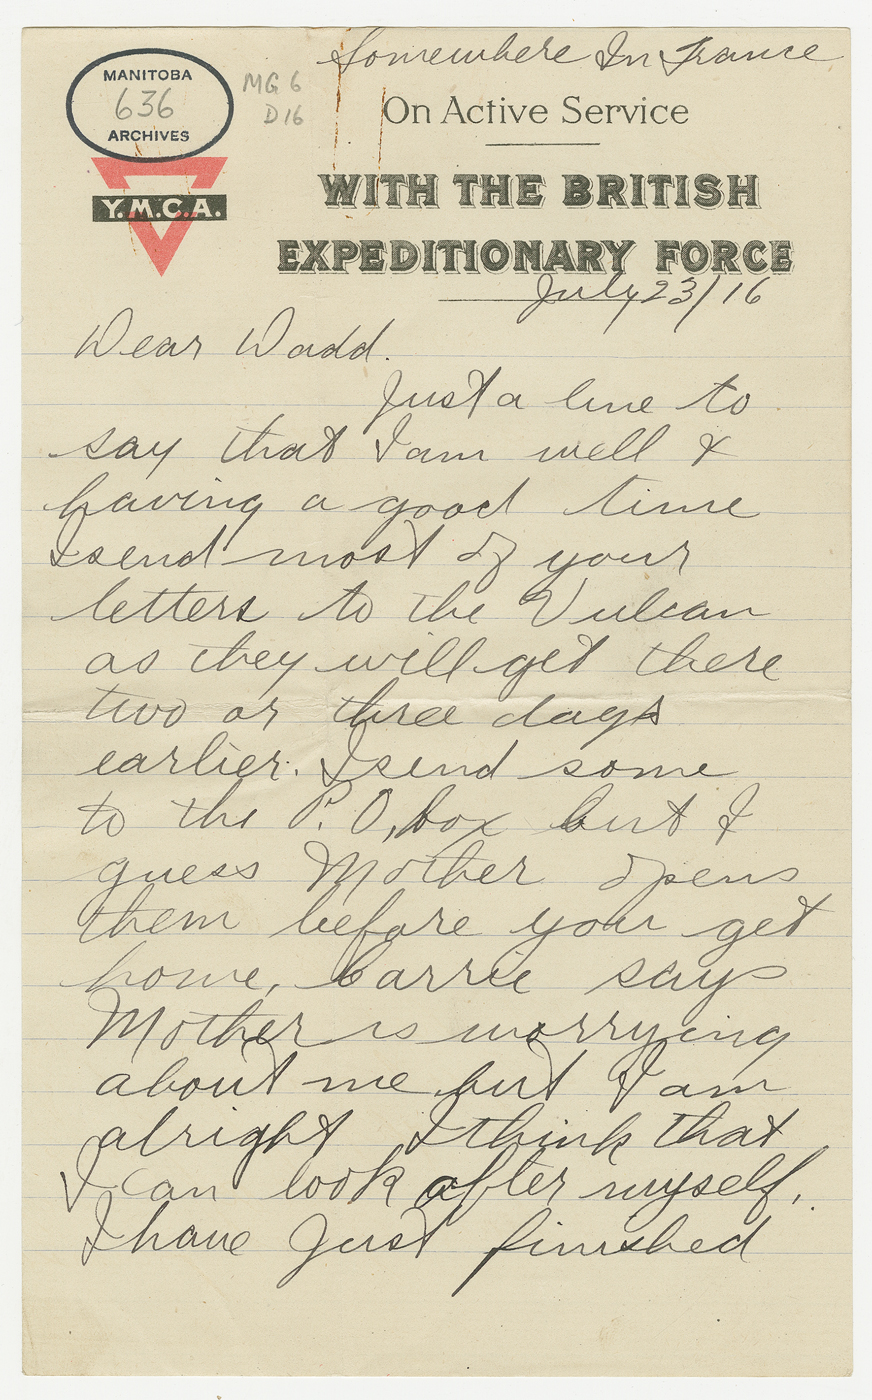 Somewhere In France
MANITOBA
636
ARCHIVES
MG 6
D16
Y.M.C.A.
On Active Service
WITH THE BRITISH
EXPEDITIONARY FORCE
July 23/16
Dear Dadd.
Just a line to
say that I am well &
having a good time
I send most of your
letters to the Vulcan
as they will get there
two or three days
earlier. I send some
to the P.O, box but I
guess Mother opens
them before you get
home, Carrie says
Mother is worrying
about me but I am
alright I think that
I can look after myself.
I have just finished